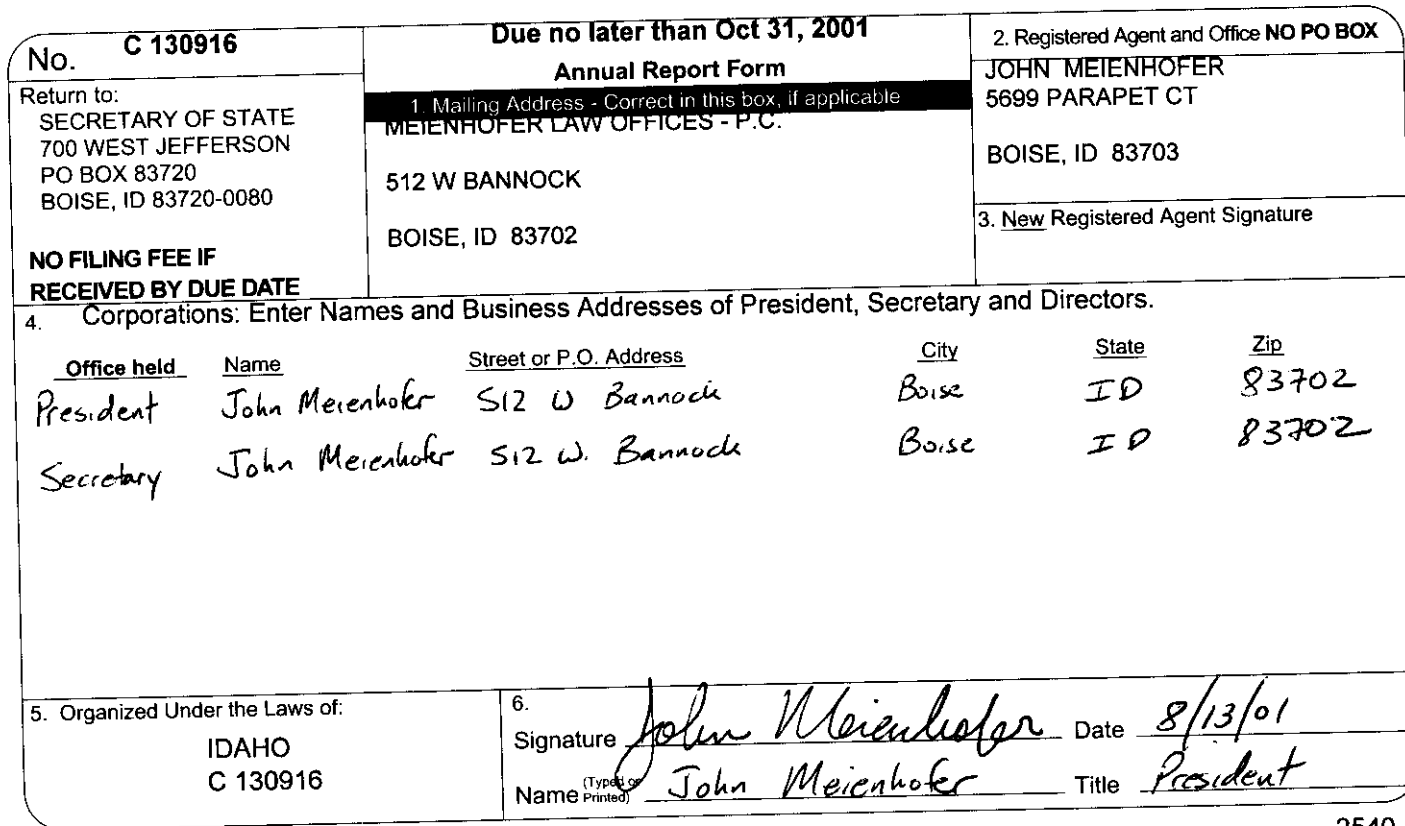 No. C 130916
Return to:
SECRETARY OF STATE
700 WEST JEFFERSON
PO BOX 83720
BOISE, ID 83720-0080
NO FILING FEE IF
RECEIVED BY DUE DATE
Due no later than Oct 31, 2001
Annual Report Form
1. Mailing Address - Correct in this box, if applicable
MEIENHOFER LAW OFFICES - P.C.
512 W BANNOCK
BOISE, ID 83702
2. Registered Agent and Office NO PO BOX
JOHN MEIENHOFER
5699 PARAPET CT
BOISE, ID 83703
3. New Registered Agent Signature
4. Corporations: Enter Names and Business Addresses of President, Secretary and Directors.
Office held Name Street or P.O. Address City State Zip
President John Meienhofer 512 W Bannock Boise ID 83702
Secretary John Meienhofer 512 W. Bannock Boise ID 83702
5. Organized Under the Laws of:
IDAHO
C 130916
6.
Signature John Meienhofer Date 8/13/01
Name (Typed or Printed) John Meienhofer Title President
2540